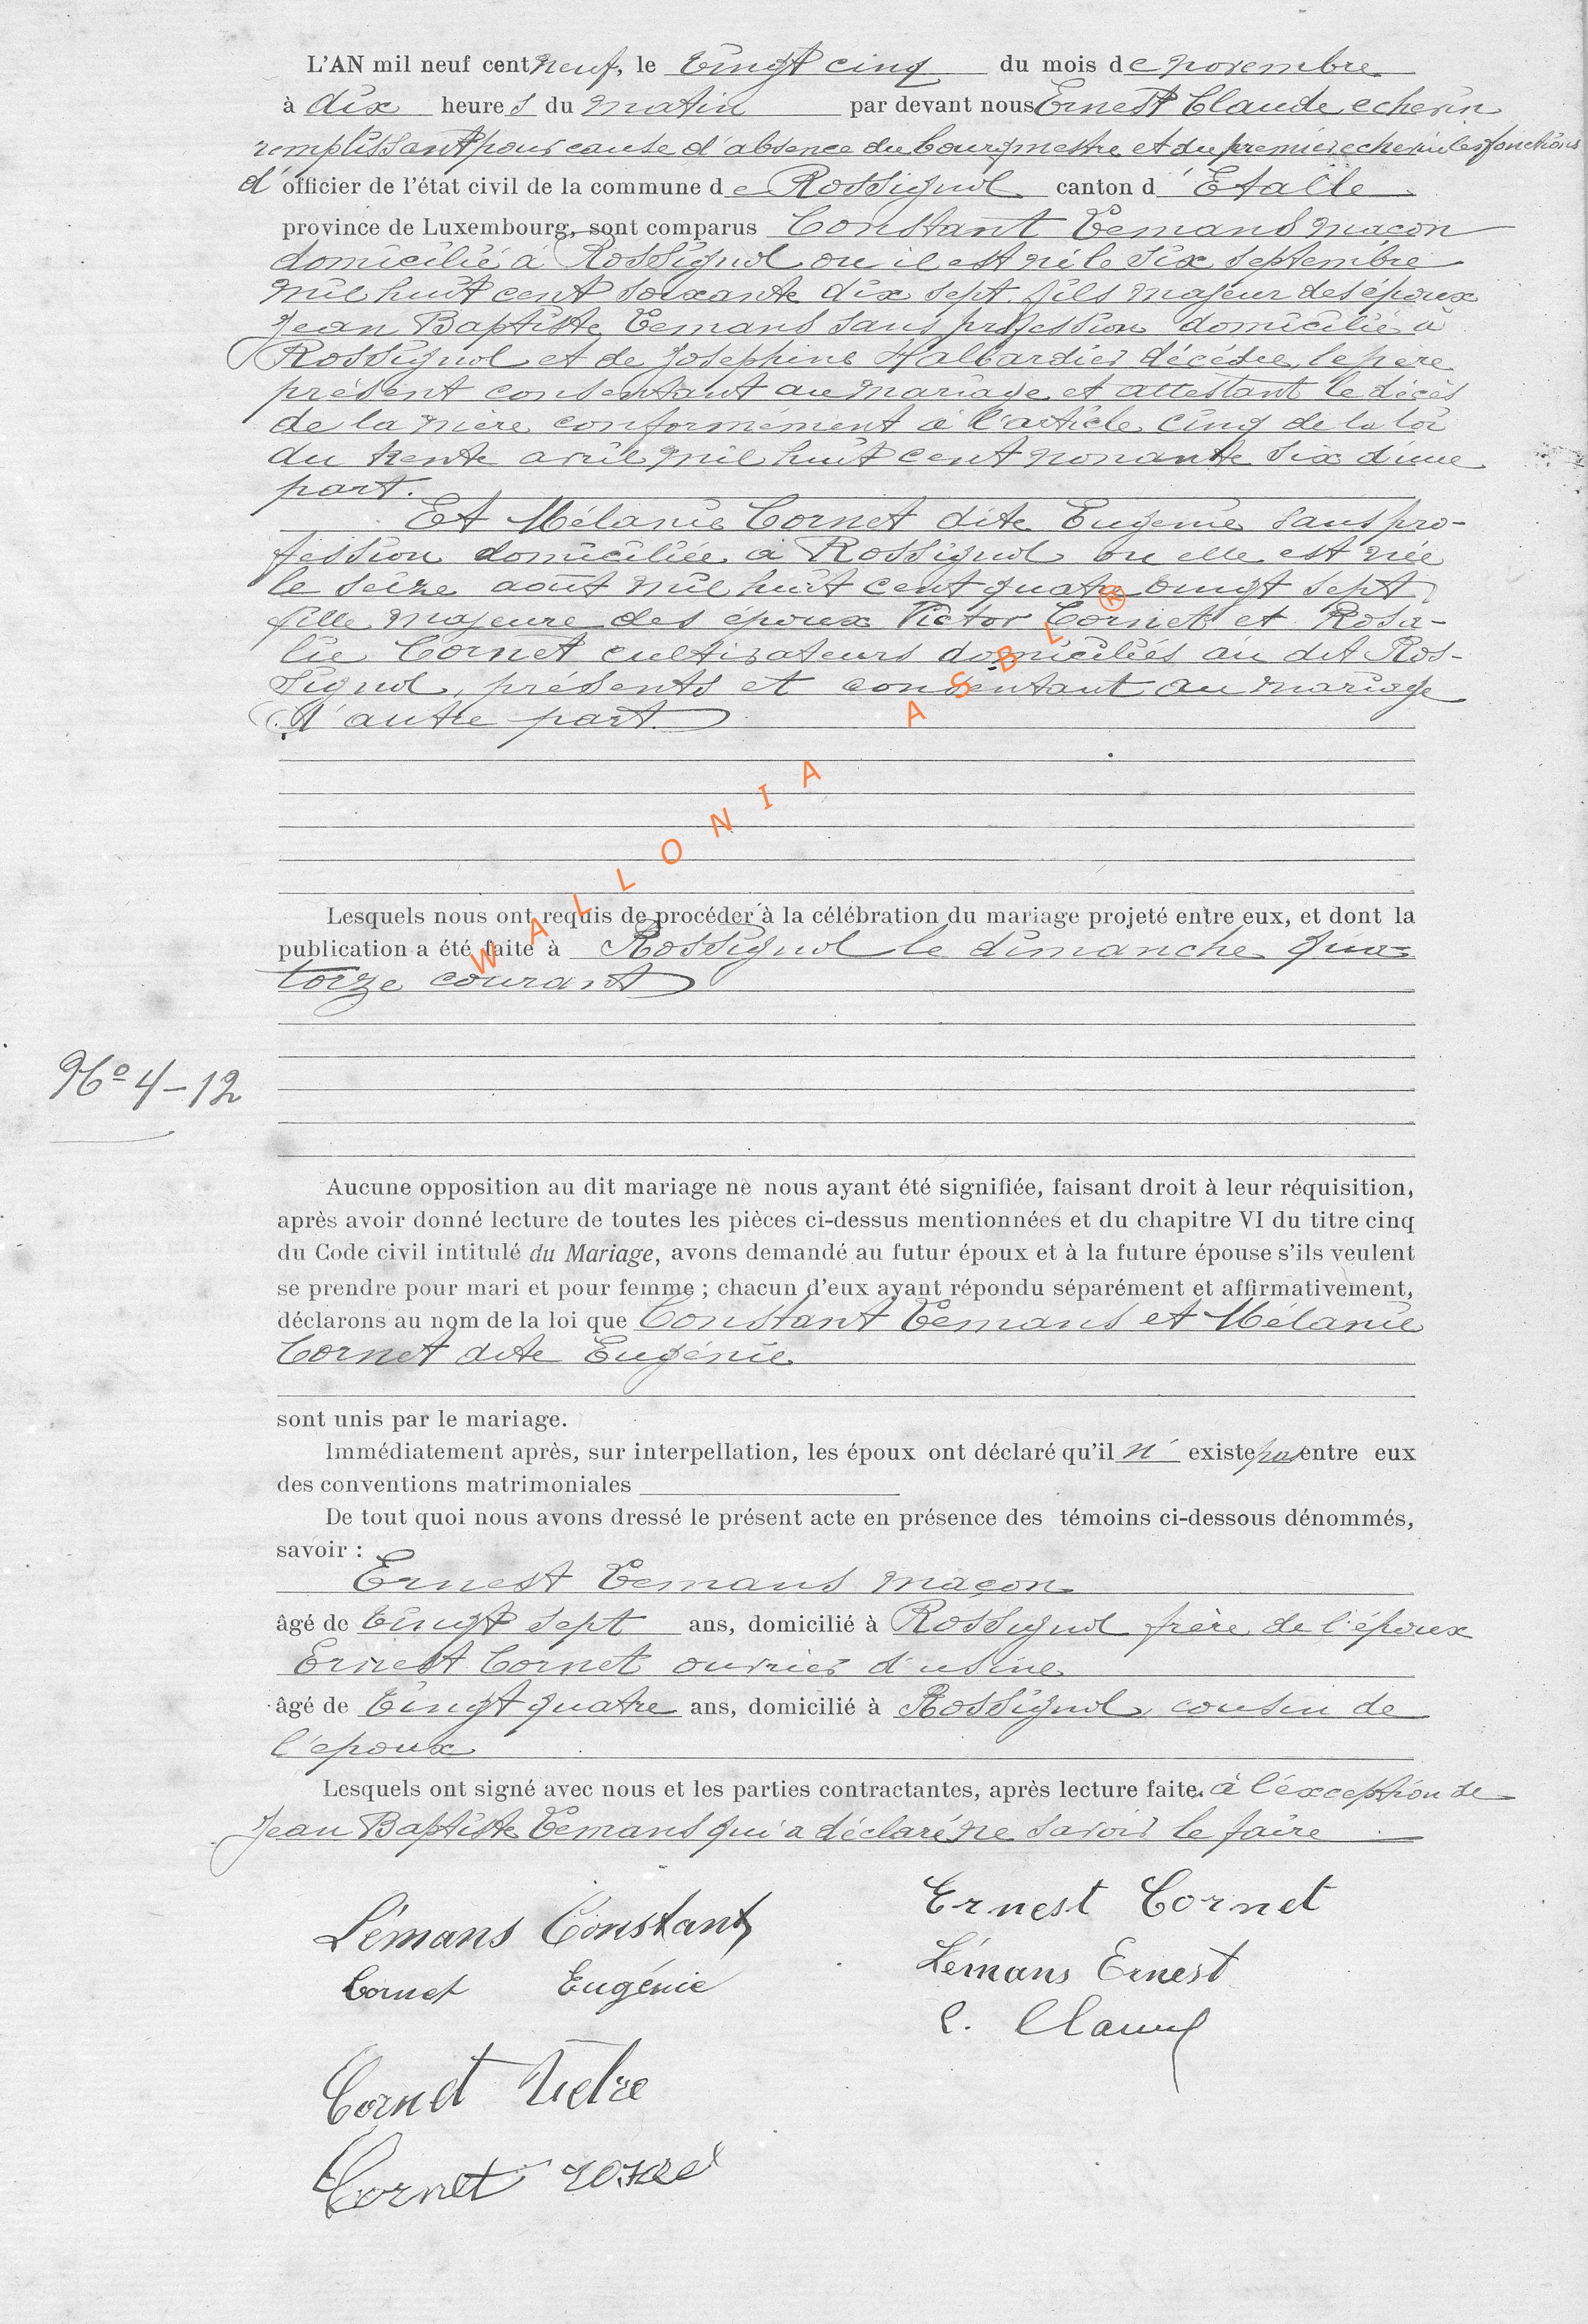 L'AN mil neuf cent neuf, le vingt cinq du mois de novembre
à dix heures du matin par devant nous Ernest Claude echevin
remplissant pour cause d'absence du bourgmestre et du premier echevin les fonctions
d' officier de l'état civil de la commune de Rossignol canton d'Etalle
province de Luxembourg, sont comparus Constant Lemans maçon
domicilié à Rossignol ou il est né le six septembre
mil huit cent soixante dix sept fils majeur des époux
Jean Baptiste Lemans sans profession domicilié à
Rossignol et de Josephine Halbardier décédée, le père
présent consentant au mariage et attestant le décès
de la mère conformément à l'article cinq de la loi
du trente avril mil huit cent nonante six d'une
part.
Et Mélanie Cornet dite Eugenie sans pro-
fession domiciliée à Rossignol ou elle est née
le seize août mil huit cent quatre vingt sept
fille majeure des époux Victor Cornet et Rosa-
lie Cornet cultivateurs domiciliés au dit Ros-
signol, présents et consentant au mariage
d'autre part
WALLONIA ASBL ®
Lesquels nous ont requis de procéder à la célébration du mariage projeté entre eux, et dont la
publication a été faite à Rossignol le dimanche qua-
torze courant
No 4-12
Aucune opposition au dit mariage ne nous ayant été signifiée, faisant droit à leur réquisition,
après avoir donné lecture de toutes les pièces ci-dessus mentionnées et du chapitre VI du titre cinq
du Code civil intitulé du Mariage, avons demandé au futur époux et à la future épouse s'ils veulent
se prendre pour mari et pour femme ; chacun d'eux ayant répondu séparément et affirmativement,
déclarons au nom de la loi que Constant Lemans et Mélanie
Cornet dite Eugénie
sont unis par le mariage.
Immédiatement après, sur interpellation, les époux ont déclaré qu'il n' existe pas entre eux
des conventions matrimoniales
De tout quoi nous avons dressé le présent acte en présence des témoins ci-dessous dénommés,
savoir :
Ernest Lemans maçon
âgé de vingt sept ans, domicilié à Rossignol frère de l'époux
Ernest Cornet ouvrier d'usine
âgé de vingt quatre ans, domicilié à Rossignol, cousin de
l'epoux
Lesquels ont signé avec nous et les parties contractantes, après lecture faite. à l'éxception de
Jean Baptiste Lemans qui a déclaré ne savoir le faire
Lémans Constant
Ernest Cornet
Cornet Eugénie
Lémans Ernest
E. Claude
Cornet
Cornet